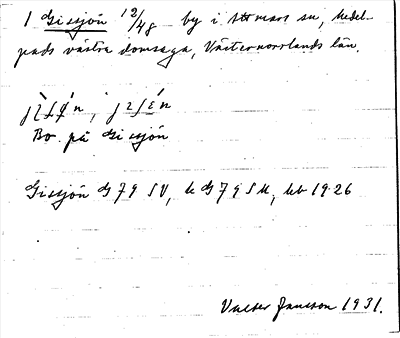 1 Gissjön 12/48 by i sn, Medel-
pads västra domsaga, Västernorrlands län.
Bo på Gissjön
Gissjön G 79 SV, G 79 SM, 1926
Valter Jansson 1931.